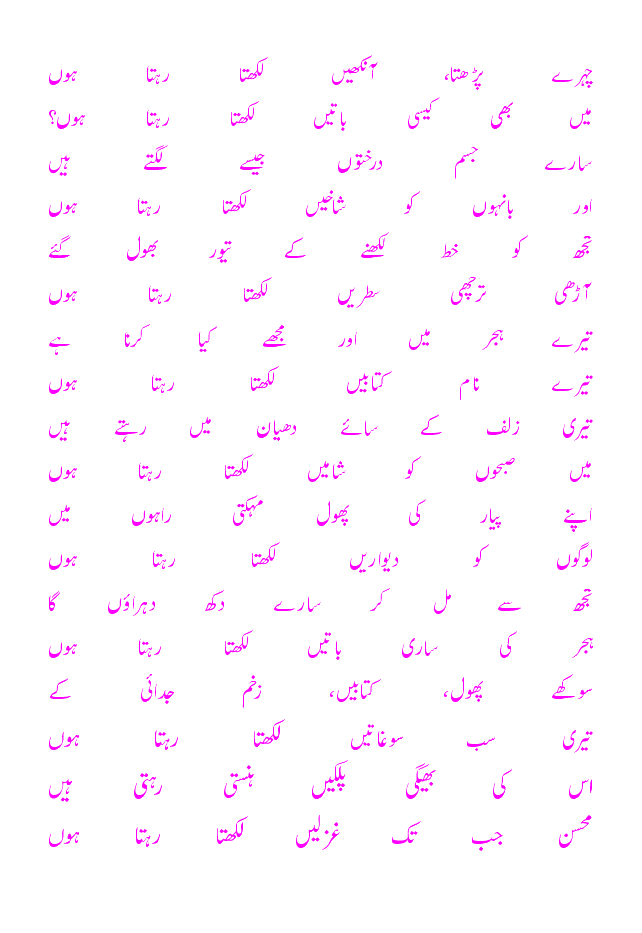 چہرے پڑھتا، آنکھیں لکھتا رہتا ہوں
میں بھی کیسی باتیں لکھتا رہتا ہوں؟
سارے جسم درختوں جیسے لگتے ہیں
اور بانہوں کو شاخیں لکھتا رہتا ہوں
تجھ کو خط لکھنے کے تیور بھول گئے
آڑھی ترچھی سطریں لکھتا رہتا ہوں
تیرے ہجر میں اور مجھے کیا کرنا ہے
تیرے نام کتابیں لکھتا رہتا ہوں
تیری زلف کے سائے دھیان میں رہتے ہیں
میں صبحوں کو شامیں لکھتا رہتا ہوں
اپنے پیار کی پھول مہکتی راہوں میں
لوگوں کو دیواریں لکھتا رہتا ہوں
تجھ سے مل کر سارے دکھ دہراؤں گا
ہجر کی ساری باتیں لکھتا رہتا ہوں
سوکھے پھول، کتابیں، زخم جدائی کے
تیری سب سوغاتیں لکھتا رہتا ہوں
اس کی بھیگی پلکیں ہنستی رہتی ہیں
محسن جب تک غزلیں لکھتا رہتا ہوں